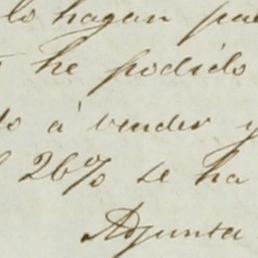 lo hagan pue
he podido
do à vender y
26% se ha
Adjunta